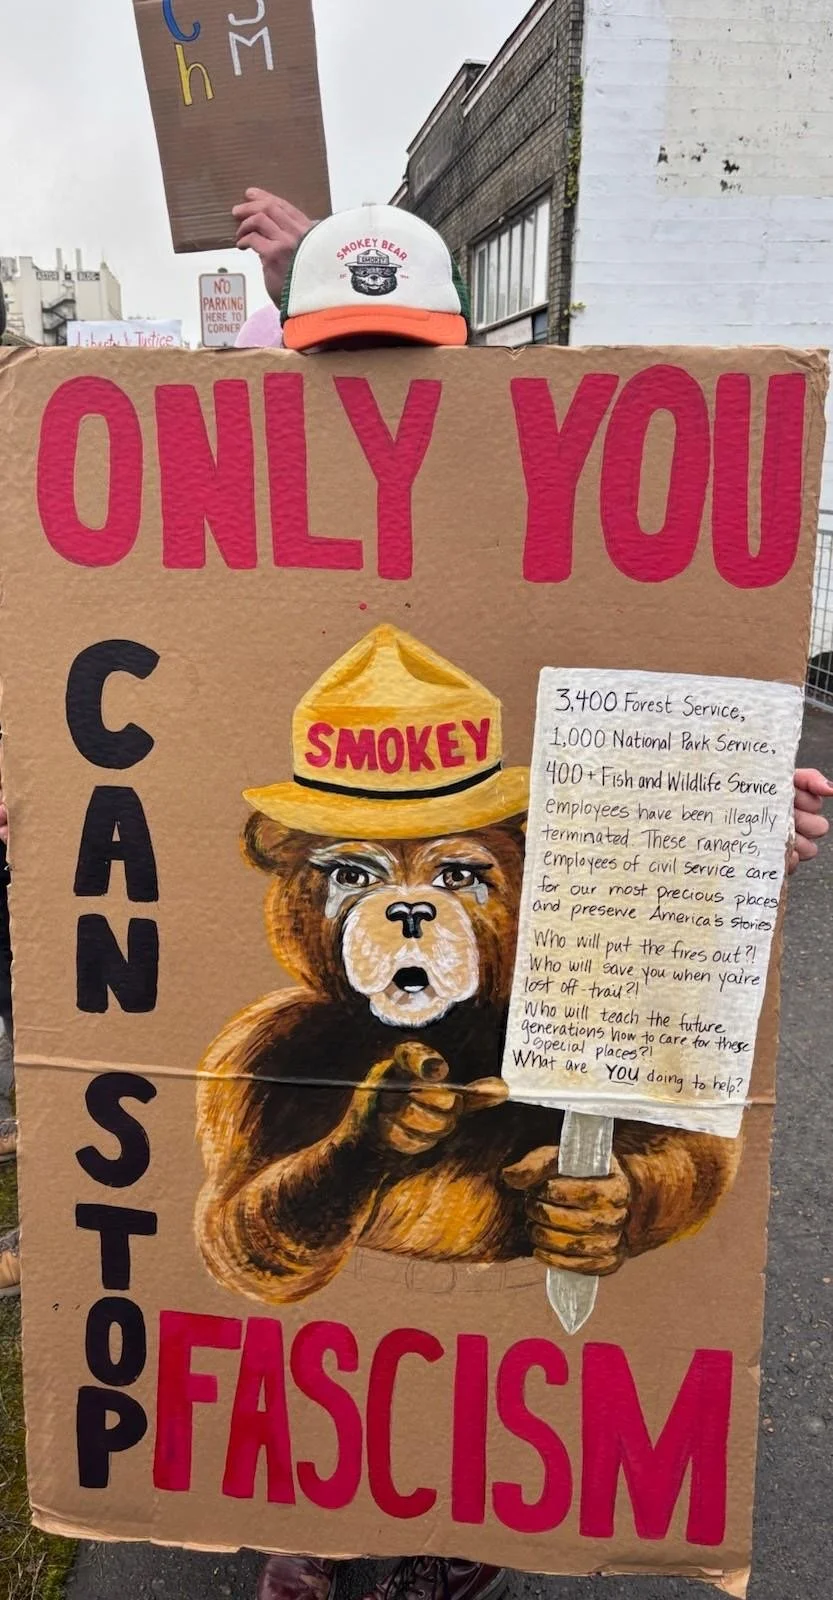 h M
SMOKEY BEAR
SMOKEY
NO
PARKING
HERE TO
CORNER
Liberty & Justice
ONLY YOU
CAN
STOP
SMOKEY
3,400 Forest Service,
1,000 National Park Service,
400+ Fish and Wildlife Service
employees have been illegally
terminated. These rangers,
employees of civil service care
for our most precious places
and preserve America's stories
Who will put the fires out?!
Who will save you when you're
lost off-trail?!
Who will teach the future
generations how to care for these
special places?!
What are YOU doing to help?
FASCISM